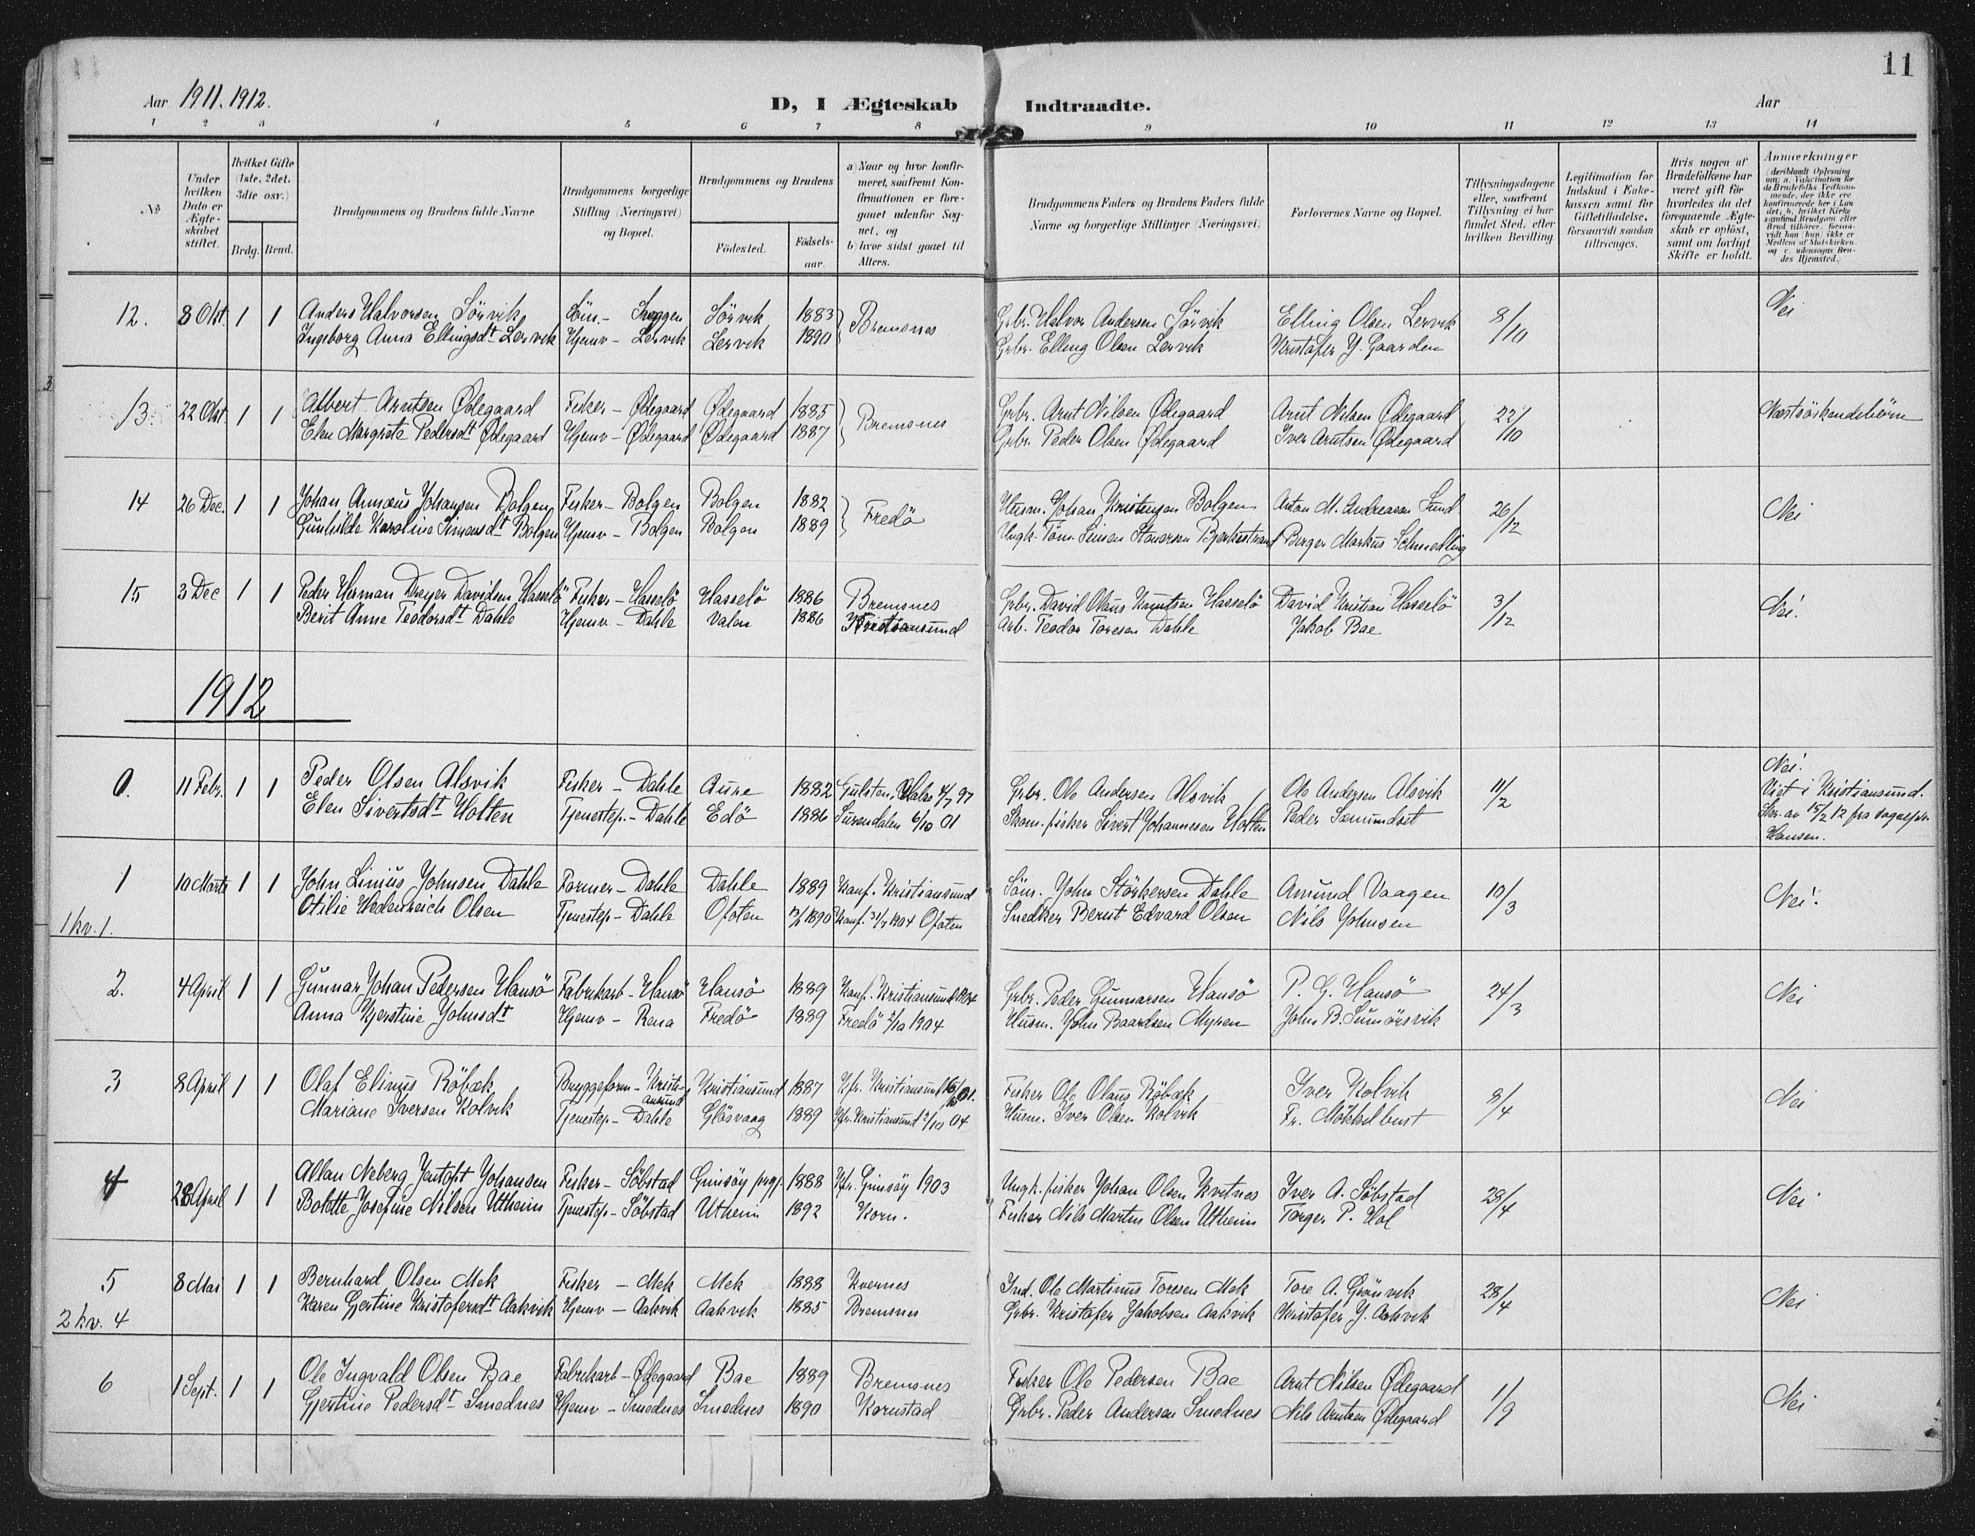 11
Aar 1911. 1912.
D, I Ægteskab Indtraadte.
Aar
1 2 3 4 5 6 7 8 9 10 11 12 13 14
No
Under hvilken Dato er Ægteskabet stiftet.
Hvilket Gifte (1ste, 2det, 3die osv.)
Brdg. Brud.
Brudgommens og Brudens fulde Navne
Brudgommens borgerlige Stilling (Næringsvei) og Bopæl.
Brudgommens og Brudens
Fødested. Fødselsaar.
a) Naar og hvor konfirmeret, saafremt Konfirmationen er foregaaet udenfor Sognet, og
b) hvor sidst gaaet til Alters.
Brudgommens Faders og Brudens Faders fulde Navne og borgerlige Stillinger (Næringsvei.
Forlovernes Navne og Bopæl.
Tillysningsdagene eller, saafremt Tillysning ei har fundet Sted, efter hvilken Bevilling.
Legitimation for Indskud i Enkekassen samt for Giftetilladelse, forsaavidt saadan tiltrænges.
Hvis nogen af Brudefolkene har været gift før hvorledes da det foregaaende Ægteskab er opløst, samt om lovligt Skifte er holdt.
Anmerkninger
12. 8 Okt. 1 1 Anders Halvorsen Sörvik Söm. - Skeggen Sörvik 1883 Bremsnes Grbr. Halvor Andersen Sörvik Elling Olsen Lervik 8/10 Nei
Ingeborg Anna Ellingsdt Lervik Hjemv - Lervik Lervik 1890 Grbr. Elling Olsen Lervik Kristafer J. Gaarden
13. 22 Okt. 1 1 Albert Arntsen Ødegaard Fisker - Ødegaard Ødegaard 1885 Bremsnes Grbr. Arnt Nilsen Ødegaard Arnt Nilsen Ødegaard 22/10 Næstsöskendebörn
Elen Margrete Pedersdt Ødegaard Hjemv - Ødegaard Ødegaard 1887 Grbr. Peder Olsen Ødegaard Iver Arntsen Ødegaard
14 26 Dec. 1 1 Johan Annæus Johansen Bolgen Fisker - Bolgen Bolgen 1882 Fredö Husm. Johan Kristensen Bolgen Anton M. Andreasen Sund 26/12 Nei
Gunhilde Karoline Simonsdt Bolgen Hjemv - Bolgen Bolgen 1889 Ungk. Töm. Simon Bjerkestrand Berger Markus Schmedling
15 3 Dec 1 1 Peder Herman Dreyer Davidsen Hasselö Fisker - Hasselö Hasselö 1886 Bremsnes Grbr. David Olaus Knutsen Hasselö David Kristian Hasselö 3/12 Nei!
Berit Anne Teodorsdt Dahle Hjemv - Dahle Valen 1886 Kristiansund Arb. Teodor Toresen Dahle Jakob Bae
1912
0. 11 Febr. 1 1 Peder Olsen Alsvik Fisker - Dahle Aure 1882 Halse 4/7 97 Grbr. Ole Andersen Alsvik Ole Andersen Alsvik 11/2 Nei!
Elen Sivertsdt Holten Tjenestep. - Dahle Edö 1886 Surendalen 6/10 01 Skom. fisker Sivert Johannesen Holten Peder Samundset Viet i Kristiansund.
Skr. av 15/2 12 fra sognepr. Hansen.
1 10 Marts 1 1 John Linius Johnsen Dahle Former - Dahle Dahle 1889 Konf. Kristiansund Söm. John Störkersen Dahle Amund Vaagen 10/3 Nei!
1 kv. 1. Otilie Hedenreich Olsen Tjenestep - Dahle Ofoten 1890 Konf. 1904 Ofoten Snedker Bernt Edvard Olsen Nils Johnsen
2. 4 April 1 1 Gunnar Johan Pedersen Hansö Fabrikarb - Hansö Hansö 1889 Konf. Kristiansund 1904 Grbr. Peder Gunnarsen Hansö P. G. Hansö 24/3 Nei
Anna Kjerstine Johnsdt Hjemv - Rena Fredö 1889 Fredö 2/10 1904 Husm. John Baardsen Myren John B. Sumörsvik
3 8 April 1 1 Olaf Elinus Röbæk Bryggeform - Kristiansund Kristiansund 1887 Kfr. Kristiansund 01. Fisker Ole Olaus Röbæk Iver Kolvik 8/4 Nei
Mariane Iversen Kolvik Tjenestep - Dahle Glösvaag 1889 Kfr. Kristiansund 2/10 04 Husm. Iver Olsen Kolvik Fr. Mökkelbust
4 28 April 1 1 Allan Neberg Jentoft Johansen Fisker - Söbstad Gimsöy prgj. 1888 Kfr. Gimsöy 1903 Ungk. fisker Johan Olsen Kvitnes Iver A. Söbstad 28/4 Nei
Bolette Josefine Nilsen Utheim Tjenestep - Söbstad Utheim 1892 Korn. Fisker Nils Martin Olsen Utheim Torger P. Hol
5 8 Mai 1 1 Bernhard Olsen Mek Fisker - Mek Mek 1888 Kvernes Ind. Ole Martinus Toresen Mek Tore A. Grönvik 28/4 Nei
2 kv. 4 Karen Gjertine Kristofersdt Aakvik Hjemv - Aakvik Aakvik 1885 Bremsnes Grbr. Kristofer Jakobsen Aakvik Kristofer J. Aakvik
6 1 Sept. 1 1 Ole Ingvald Olsen Bae Fabrikarb - Ødegaard Bae 1889 Bremsnes Fisker Ole Pedersen Bae Arnt Nilsen Ødegaard 1/9 Nei
Gjertine Pedersdt Smednes Hjemv - Smednes Smednes 1890 Kornstad Grbr. Peder Andersen Smednes Nils Arntsen Ødegaard